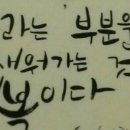 라는 부분을
채워가는 것
복이다